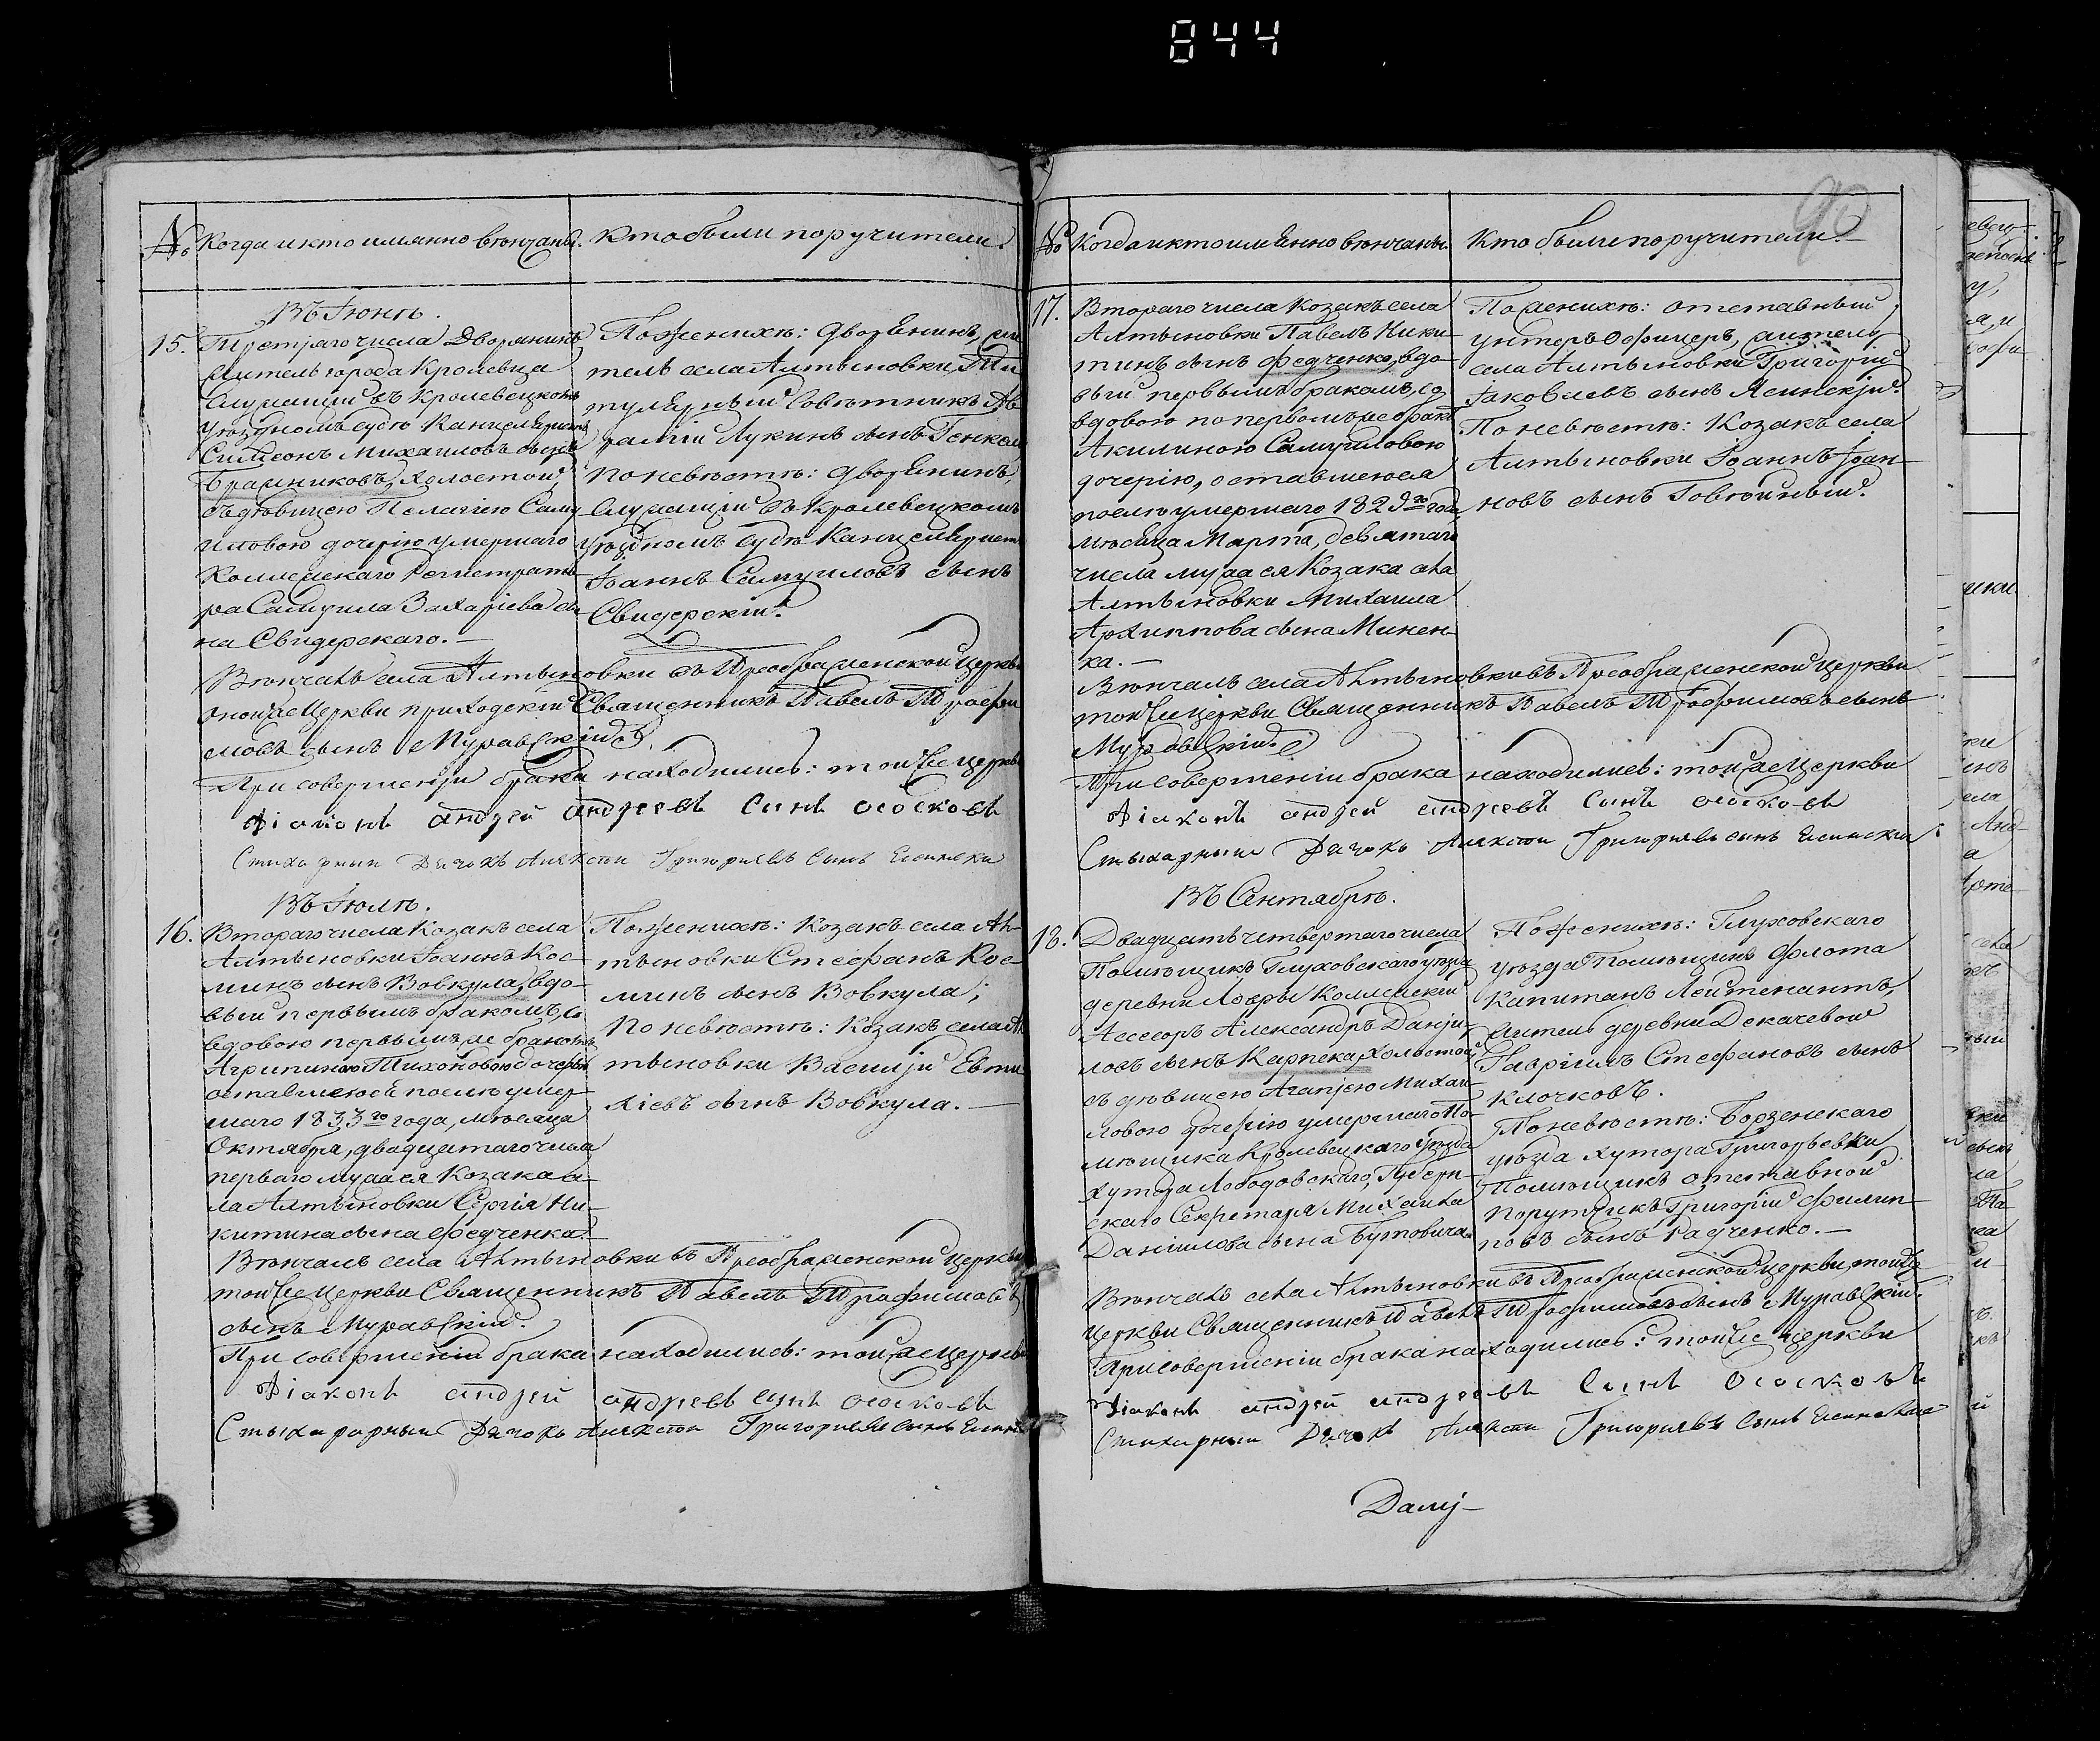 844
90
№ Когда и кто имянно венчаны.
Кто были поручители.
Въ Іюнѣ.
15. Третяго числа Дворянинъ
житель города Кролевца
служащій въ Кролевецкомъ
Уѣздномъ Судѣ Канцеляристъ
Симеонъ Михайловъ сынъ
Бражниковъ, холостой,
съ дѣвицею Пелагіею Саму
иловою дочерію умершаго
Коллежскаго Регистрато
ра Самуила Захаріева сы
на Свидерскаго.—
По женихѣ: дворЯнинъ, жи
тель села Алтыновки, Ти
тулЯрный Совѣтникъ Ав
рамій Лукинъ сынъ
По невѣстѣ: дворЯнинъ,
служащій въ Кролевецкомъ
Уѣздномъ Судѣ КанцелЯрист
Іоаннъ Самуиловъ сынъ
Свидерскій.
Вѣнчалъ села Алтыновки въ Преображенской Церкви
оной же Церкви приходскій Священникъ Павелъ Трофи
мовъ сынъ Муравскій.
При совершеніи брака находились: той же церкви
Діаконъ андрей андреевъ сынъ ососковъ
Стихарный Дячокъ Алексѣй Григориевъ сынъ Ясински
Въ Іюлѣ.
16. Втораго числа Козакъ села
Алтыновки Іоаннъ Кос
минъ сынъ Вовкула, вдо-
вый первымъ бракомъ, со
вдовою первымъ же бракомъ
Агрипиною Тихоновою дочерію
оставшеюся послѣ умер
шаго 1833го года, мѣсяца
Октября, двадцатаго числа
перваго мужа ея Козака се
ла Алтыновки Сергія Ни-
китина сына Федченка.
По женихѣ: Козакъ села Ал-
тыновки Стефанъ Кос-
минъ сынъ Вовкула;
По невѣстѣ: Козакъ села Ал
тыновки Василій Евти
хіевъ сынъ Вовкула.—
Вѣнчалъ села Алтыновки въ Преображенской Церкви
той же Церкви Священникъ Павелъ Трофимовъ
сынъ Муравскій.
При совершеніи брака находились: той же Церкви
Діаконъ андрей андреевъ сынъ ососковъ
Стыхарарный Дячокъ Алексѣй Григориевъ сынъ Ясинск
№ Когда и кто имЯнно вѣнчаны.
Кто были поручители.—
17. Втораго числа Козакъ села
Алтыновки Павелъ Ники-
тинъ сынъ Федченко, вдо-
вый первымъ бракомъ, со
вдовою по первомъ же бракѣ
Акилиною Самуиловою
дочерію, оставшеюся
послѣ умершаго 1829го года,
мѣсяца Марта, девятаго
числа мужа ея Козака села
Алтыновки Михаила
Архиппова сына Минен-
ка.—
По женихѣ: отставный
унтеръ Офицеръ, житель
села Алтыновки Григорій
Іаковлевъ сынъ Ясинскій.
По невѣстѣ: Козакъ села
Алтыновки Іоаннъ Іоан-
новъ сынъ
Вѣнчалъ села Алтыновки въ Преображенской Церкви
той же Церкви Священникъ Павелъ Трофимовъ сынъ
Муравскій.
При совершеніи брака находились: той же Церкви
Діаконъ андрей андреевъ сынъ ососковъ
Стыхарный Дячокъ Алексѣй Григориевъ сынъ Ясински
Въ Сентябрѣ.
18. Двадцать четвертаго числа
Помѣщикъ Глуховскаго уѣзда
деревни Локры Коллежскій
Асессоръ Александръ Даніи-
ловъ сынъ Карпека, холостой
съ дѣвицею Агапіею Михаи-
ловою дочерію умершаго По-
мѣщика Кролевецкаго уѣзда
хутора Лободовскаго, Губерн-
скаго Секретаря Михаила
Даніилова сына Бутовича.
По женихѣ: Глуховскаго
уѣзда Помѣщикъ Флота
Капитанъ Лейтенантъ,
житель деревни Декачевой
Гавріилъ Стефановъ сынъ
Клочковъ.
По невѣстѣ: Борзенскаго
уѣзда хутора Григорьевки
Помѣщикъ отставной
Порутчикъ Григорій Филип-
повъ сынъ Радченко.—
Вѣнчалъ села Алтыновки въ Преображенской Церкви, той же
Церкви Священникъ Павелъ Трофимовъ сынъ Муравскій.
При совершеніи брака находились: той же церкви
Діаконъ андрей андреевъ сынъ ососковъ
Стихарный Дячокъ Алексѣй Григориевъ сынъ Ясинский